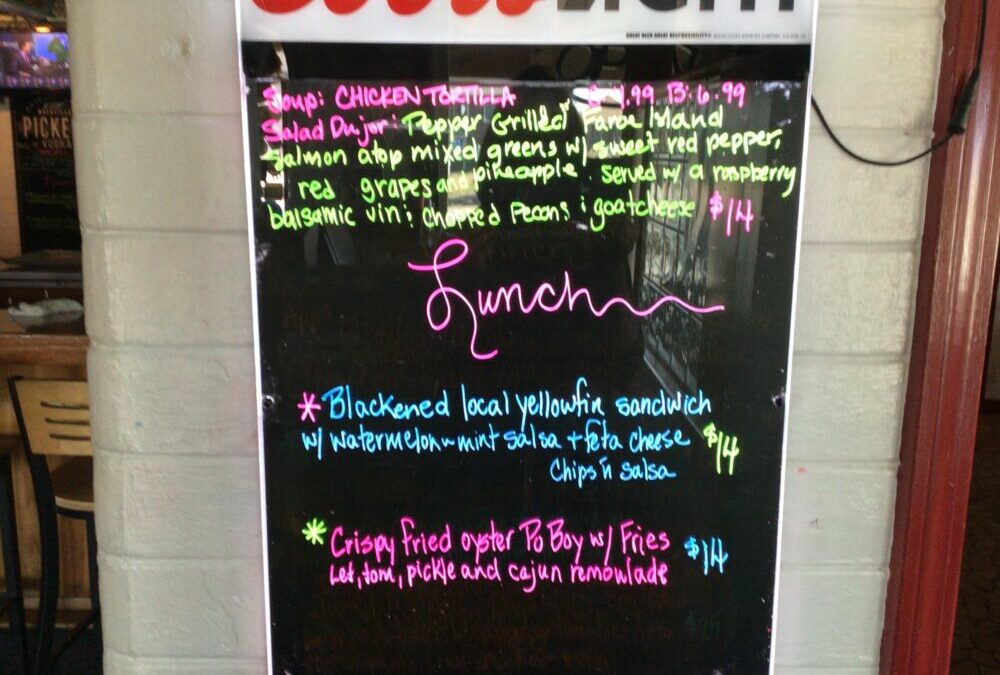 Coors LIGHT
GREAT BEER GREAT RESPONSIBILITY®
Soup: CHICKEN TORTILLA C-4.99 B:6.99
Salad Dujor: Pepper Grilled Faroe Island
Salmon atop mixed greens w/ sweet red pepper,
red grapes and pineapple. served w/ a raspberry
balsamic vin; chopped Pecans ; goatcheese $14
Lunch
* Blackened local yellowfin sandwich
w/ watermelon-mint salsa + feta cheese $14
Chips n salsa
* Crispy fried oyster Po Boy w/ Fries $14
Let, tom, pickle and cajun remoulade
PICKE
VODKA